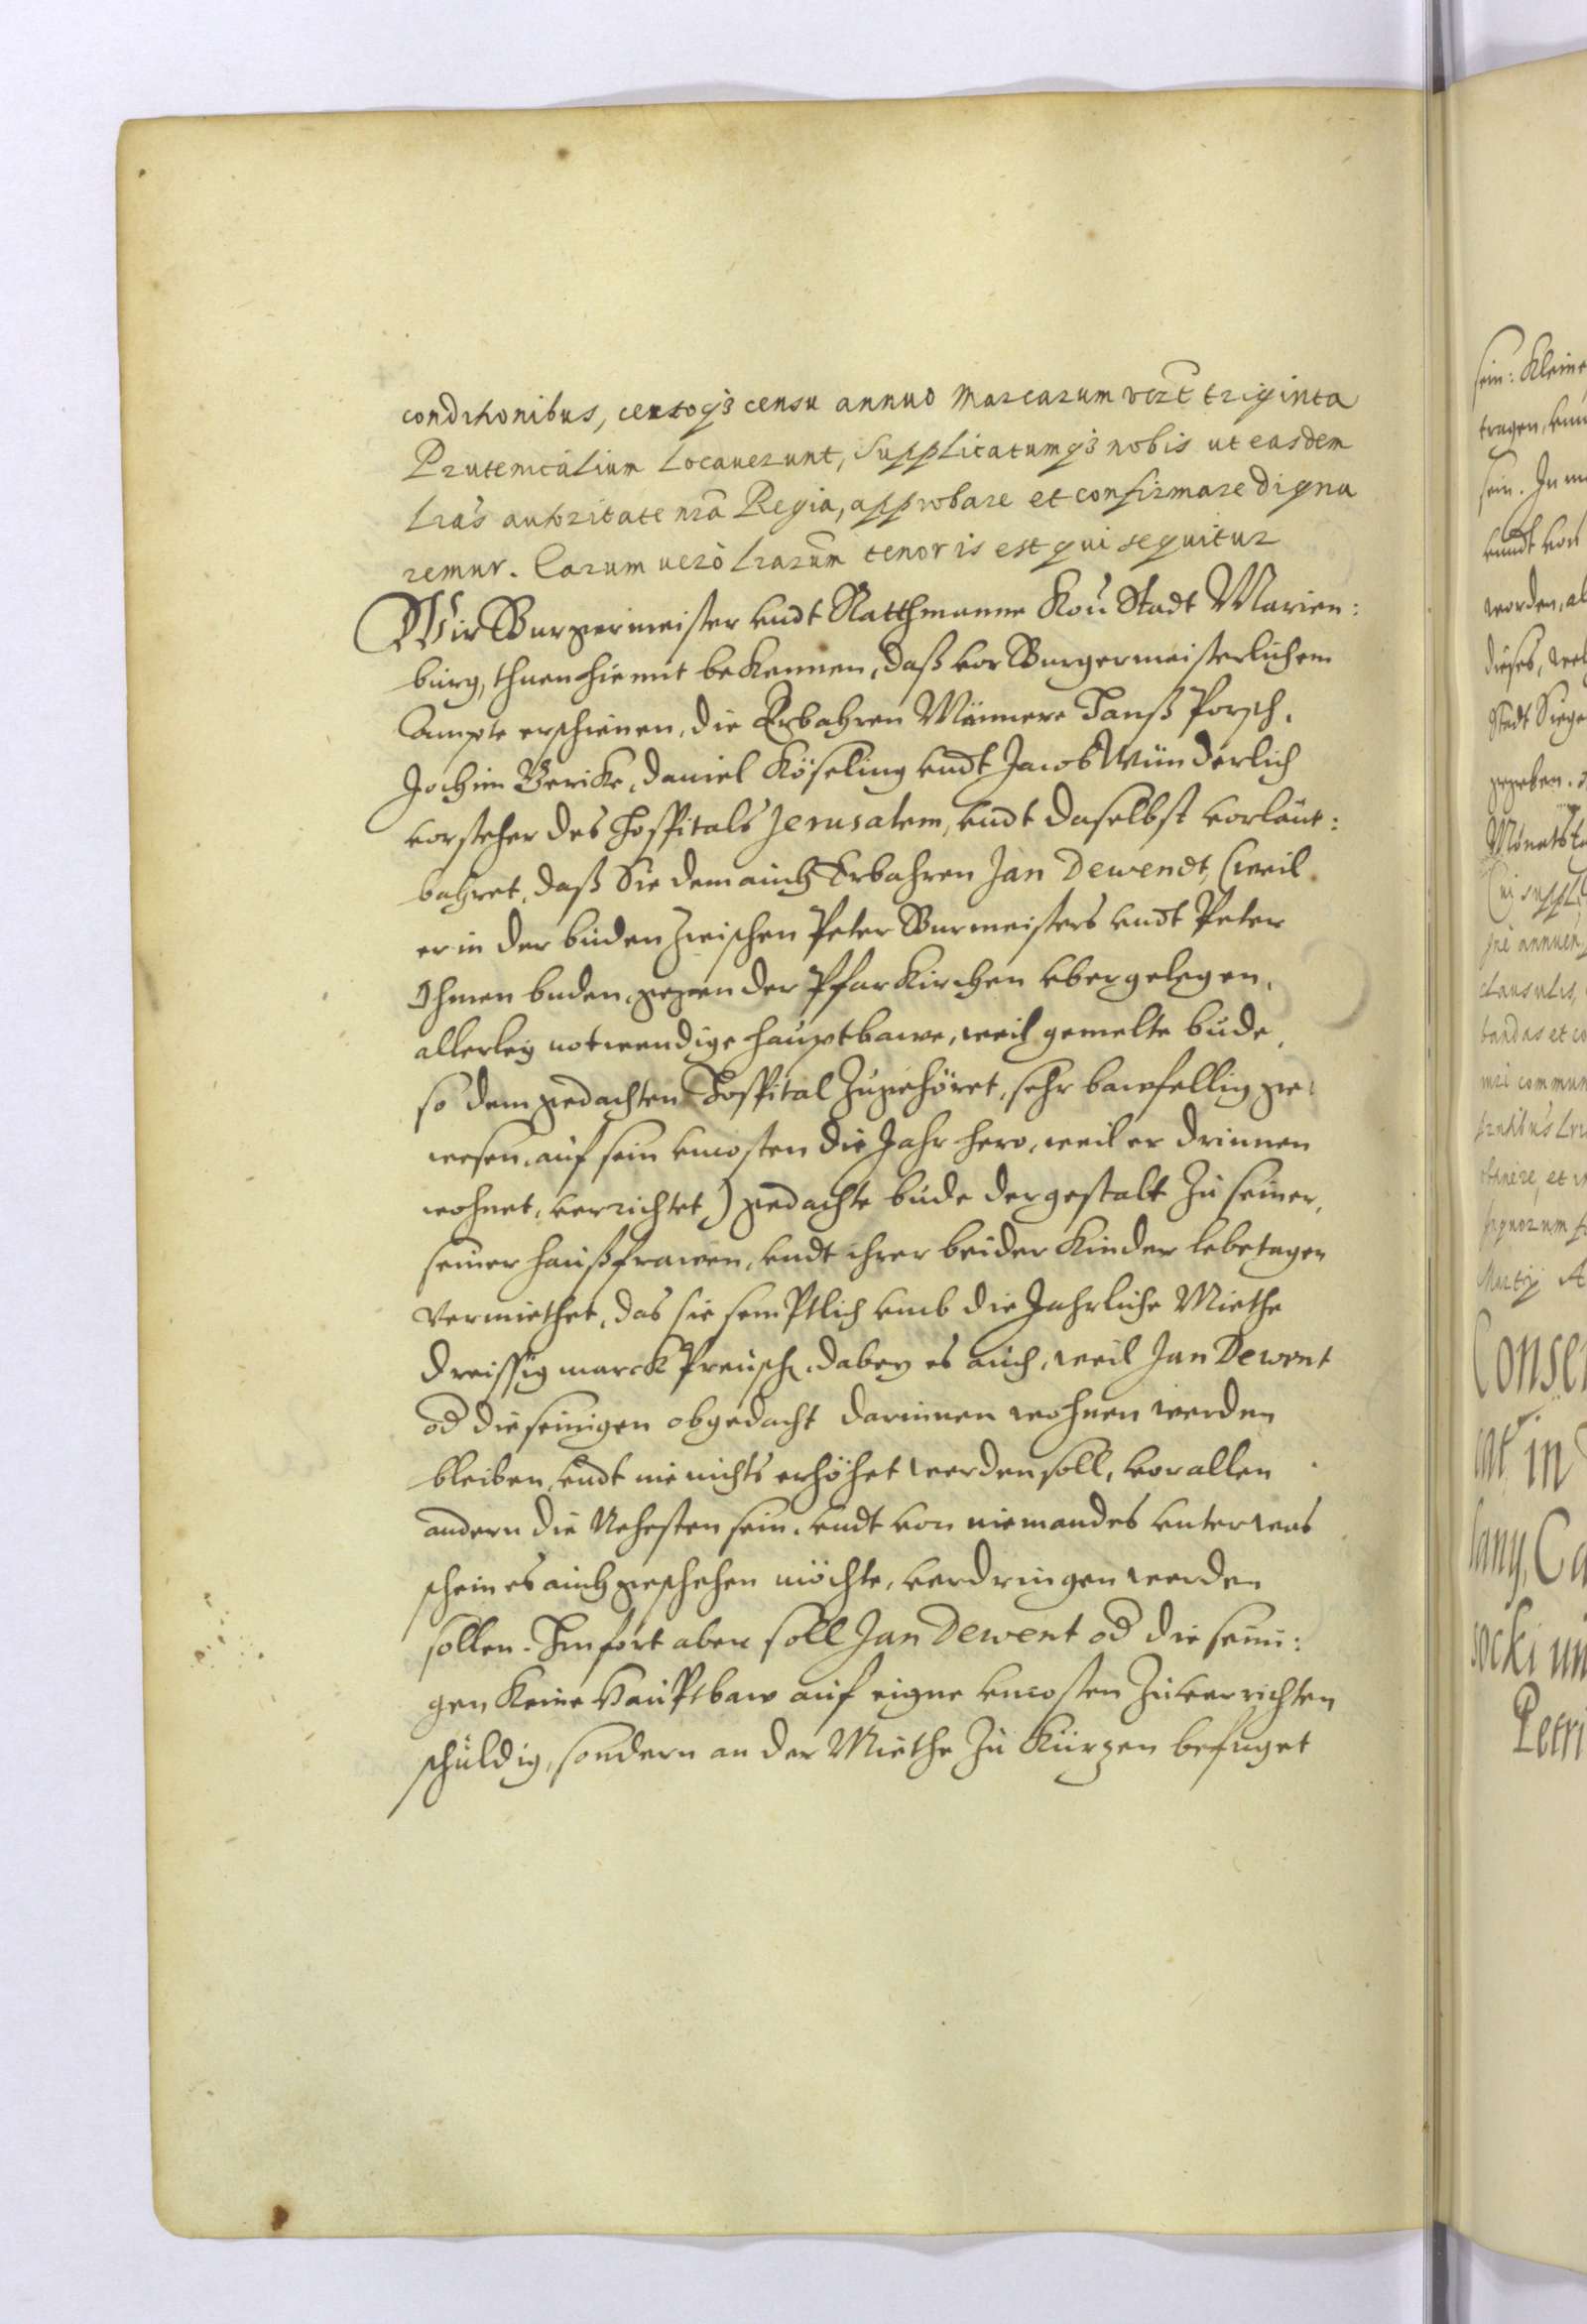 conditionibus, certoq3 censu annuo Marcarum vizt triginta
Prutenicalium locaverunt, Supplicatumq3 nobis ut easdem
Lras authoritate nra Regia, approbare et confirmare digna
remur. Earum uero Lrarum tenor is est qui sequitur
Wir Burgermeister vndt Ratthmanne Kön Stadt Marien:
burg, thuen hiemit bekennen, daß vor Burgermeisterlichem
Ampte erschienen, die Erbahren Männere Hanß Porsch,
Jochim Gericke, Daniel Köseling vndt Jacob Wünderlich
vorsteher des Hospitals Jerusalem, vndt daselbst vorlaut:
bahret, daß Sie dem auch Erbahren Jan Dewendt, (weil
er in der buden zwischen Peter Burmeisters vndt Peter
Ihmen buden, gegen der Pfarkirchen vber gelegen,
allerley notwendige hauptbawe, weil gemelte bude,
so dem gedachten Hospital zugehöret, sehr bawfellig ge:
wesen, auf sein vncosten die Jahr hero, weil er drinnen
wohnet, verrichtet) gedachte bude dergestalt zu seiner,
seiner haußfrawen, vndt ihrer beider Kinder lebetagen
vermiethet, das sie semptlich vmb die Jahrliche Miethe
dreissig marck Preusch, dabey es auch, weil Jan Dewent
od die seinigen obgedacht darinnen wohnen werden
bleiben, vndt nie nichts erhöhet werden soll, vor allen
andern die Nehesten sein, vndt von niemandes vnter was
schein es auch geschehen möchte, verdringen werden
sollen. Hinfort aber soll Jan Dewent od die seini:
gen keine Hauptbaw auf eigne vncosten zuverrichten
schuldig, sondern an der Miethe zu kürzen befuget
sein: Kleine
tragen,
sein. In
vnndt von
worden, al
dieses,
Stadt Siege
gegeben.
Monats
annuen
clausulis,
bandas et co
mri commun
obtinere, et
signorum
Martij A
Conse
in
lany, Ca
socki
Petri